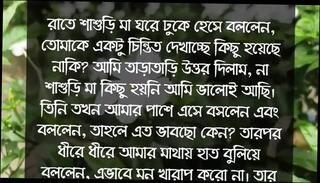 রাতে শাশুড়ি মা ঘরে ঢুকে হেসে বললেন,
তোমাকে একটু চিন্তিত দেখাচ্ছে কিছু হয়েছে
নাকি? আমি তাড়াতাড়ি উত্তর দিলাম, না
শাশুড়ি মা কিছু হয়নি আমি ভালোই আছি।
তিনি তখন আমার পাশে এসে বসলেন এবং
বললেন, তাহলে এত ভাবছো কেন? তারপর
ধীরে ধীরে আমার মাথায় হাত বুলিয়ে
বললেন, এভাবে মন খারাপ করো না। তার